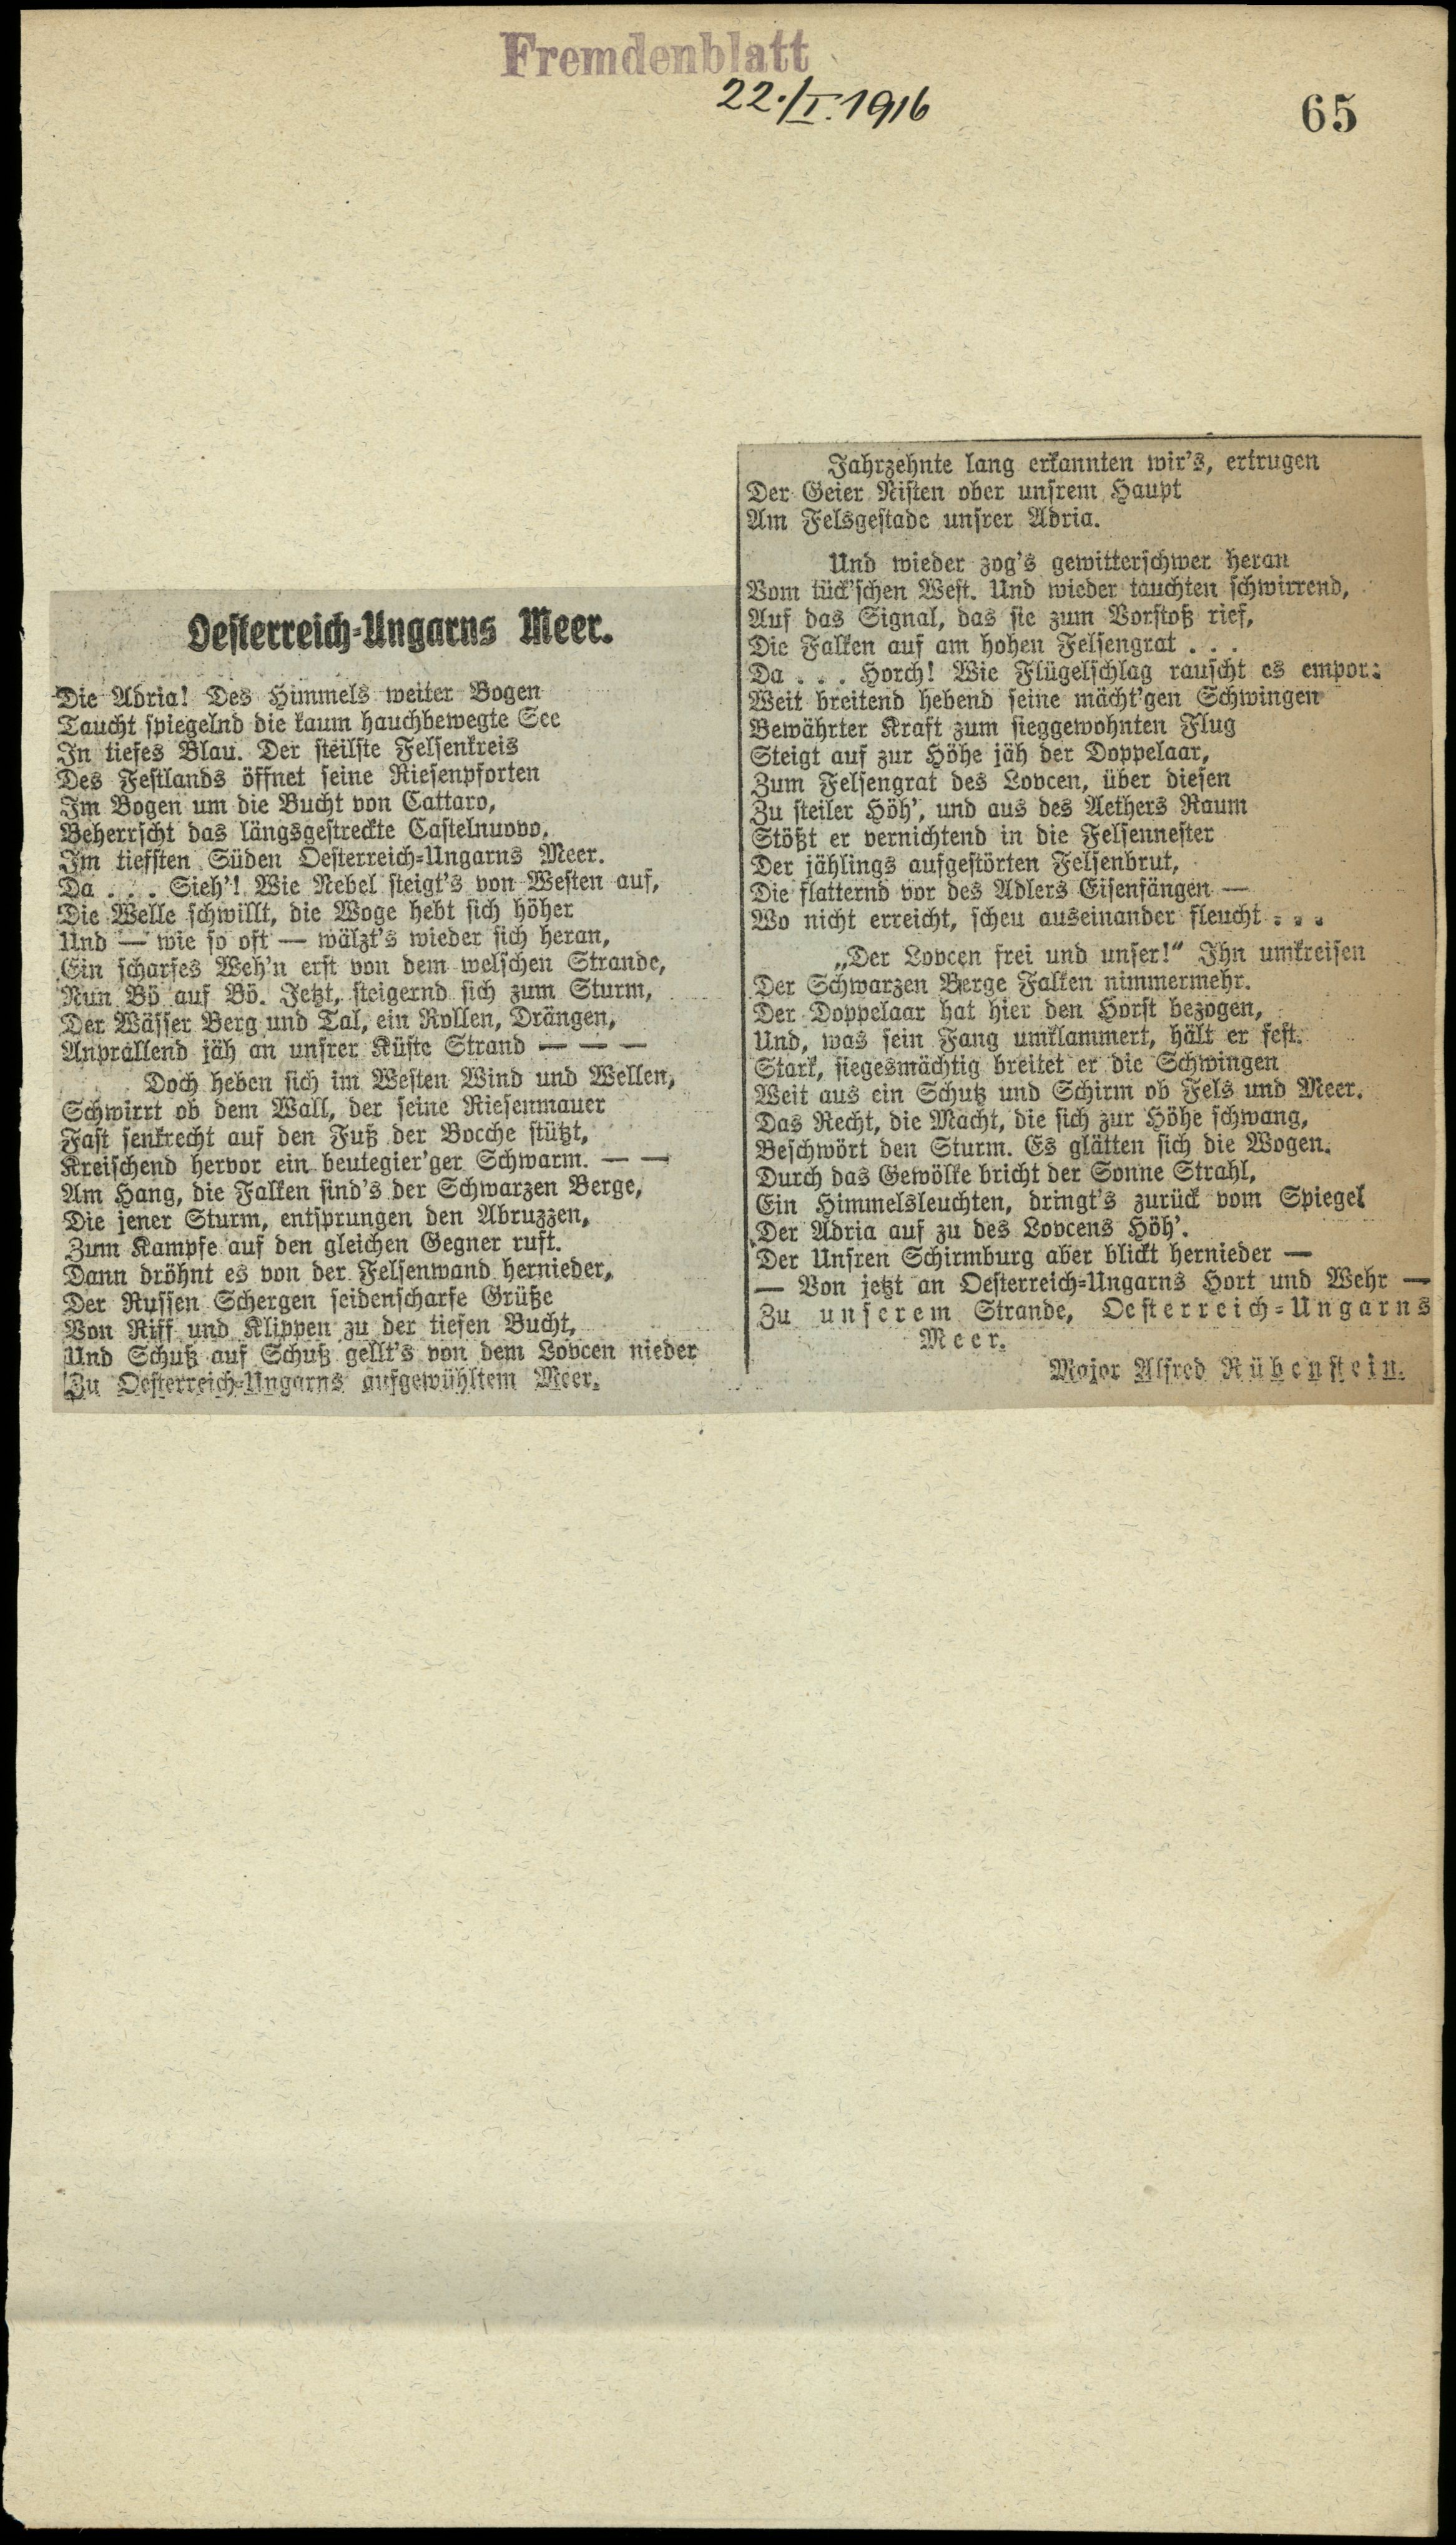 Fremdenblatt
22./I. 1916
65
Oesterreich-Ungarns Meer.
Die Adria! Des Himmels weiter Bogen
Taucht spiegelnd die kaum hauchbewegte See
In tiefes Blau. Der steilste Felsenkreis
Des Festlands öffnet seine Riesenpforten
Im Bogen um die Bucht von Cattaro,
Beherrscht das längsgestreckte Castelnuovo.
Im tiefsten Süden Oesterreich-Ungarns Meer.
Da . . . Sieh'! Wie Nebel steigt's von Westen auf,
Die Welle schwillt, die Woge hebt sich höher
Und — wie so oft — wälzt's wieder sich heran,
Ein scharfes Weh'n erst von dem welschen Strande,
Nun Bö auf Bö. Jetzt, steigernd sich zum Sturm,
Der Wässer Berg und Tal, ein Rollen, Drängen,
Anprallend jäh an unsrer Küste Strand — — —
Doch heben sich im Westen Wind und Wellen,
Schwirrt ob dem Wall, der seine Riesenmauer
Fast senkrecht auf den Fuß der Bocche stützt,
Kreischend hervor ein beutegier'ger Schwarm. — —
Am Hang, die Falken sind's der Schwarzen Berge,
Die jener Sturm, entsprungen den Abruzzen,
Zum Kampfe auf den gleichen Gegner ruft.
Dann dröhnt es von der Felsenwand hernieder,
Der Russen Schergen seidenscharfe Grüße
Von Riff und Klippen zu der tiefen Bucht,
Und Schuß auf Schuß gellt's von dem Lovcen nieder
Zu Oesterreich-Ungarns aufgewühltem Meer.
Jahrzehnte lang erkannten wir's, ertrugen
Der Geier Nisten ober unsrem Haupt
Am Felsgestade unsrer Adria.
Und wieder zog's gewitterschwer heran
Vom tück'schen West. Und wieder tauchten schwirrend,
Auf das Signal, das sie zum Vorstoß rief,
Die Falken auf am hohen Felsengrat . . .
Da . . . Horch! Wie Flügelschlag rauscht es empor:
Weit breitend hebend seine mächt'gen Schwingen
Bewährter Kraft zum sieggewohnten Flug
Steigt auf zur Höhe jäh der Doppelaar,
Zum Felsengrat des Lovcen, über diesen
Zu steiler Höh', und aus des Aethers Raum
Stößt er vernichtend in die Felsennester
Der jählings aufgestörten Felsenbrut,
Die flatternd vor des Adlers Eisenfängen —
Wo nicht erreicht, scheu auseinander fleucht . . .
„Der Lovcen frei und unser!“ Ihn umkreisen
Der Schwarzen Berge Falken nimmermehr.
Der Doppelaar hat hier den Horst bezogen,
Und, was sein Fang umklammert, hält er fest.
Stark, siegesmächtig breitet er die Schwingen
Weit aus ein Schutz und Schirm ob Fels und Meer.
Das Recht, die Macht, die sich zur Höhe schwang,
Beschwört den Sturm. Es glätten sich die Wogen.
Durch das Gewölke bricht der Sonne Strahl,
Ein Himmelsleuchten, dringt's zurück vom Spiegel
Der Adria auf zu des Lovcens Höh'.
Der Unsren Schirmburg aber blickt hernieder —
— Von jetzt an Oesterreich-Ungarns Hort und Wehr —
Zu unserem Strande, Oesterreich-Ungarns
Meer.
Major Alfred Rübenstein.